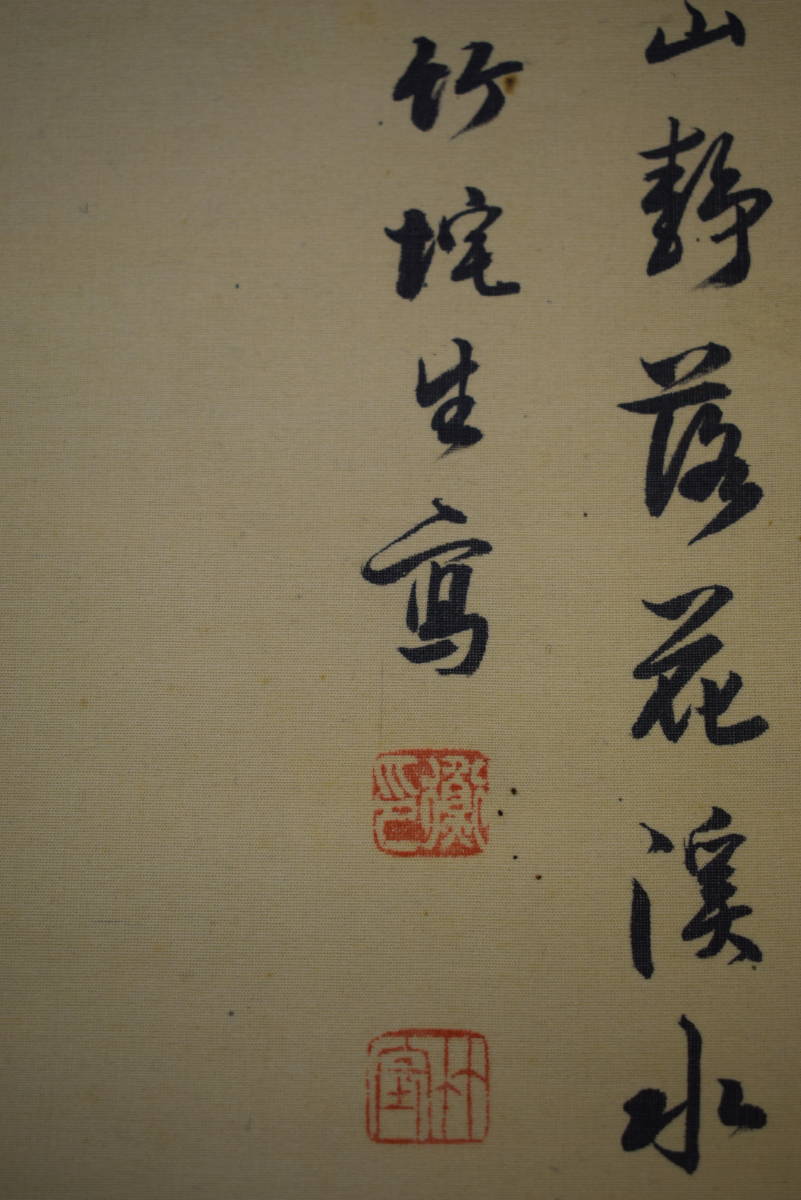 山静落花溪水
竹垞生寫